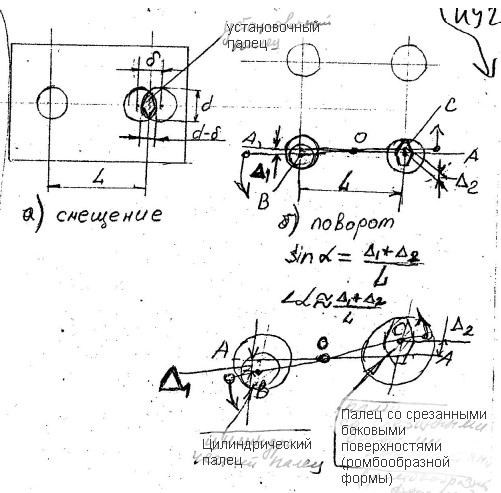 установочный
палец
δ
d
d-δ
L
а) смещение
ИУ2
C
A₁
O
A
Δ₁
B
L
Δ₂
б) поворот
sin α = Δ₁+Δ₂/L
∠α ≈ Δ₁+Δ₂/L
A
O
C
Δ₂
A
Δ₁
B
Цилиндрический
палец
Палец со срезанными
боковыми
поверхностями
(ромбообразной
формы)